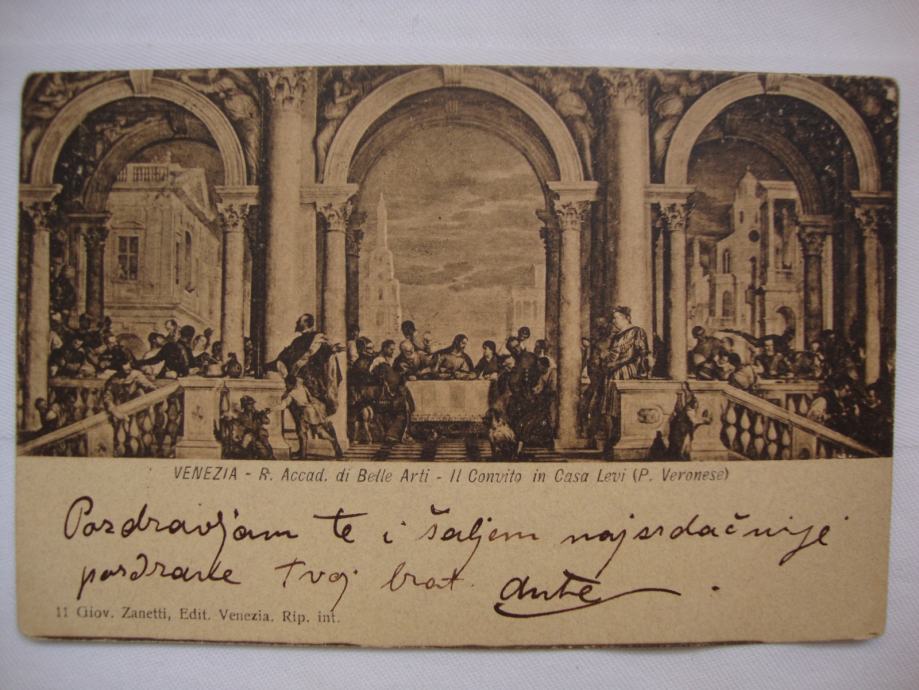 VENEZIA - R. Accad. di Belle Arti - Il Convito in Casa Levi (P. Veronese)
Pozdravljam te i šaljem najsrdačnije
pozdrave Tvoj brat Ante
11 Giov. Zanetti, Edit. Venezia. Rip. int.